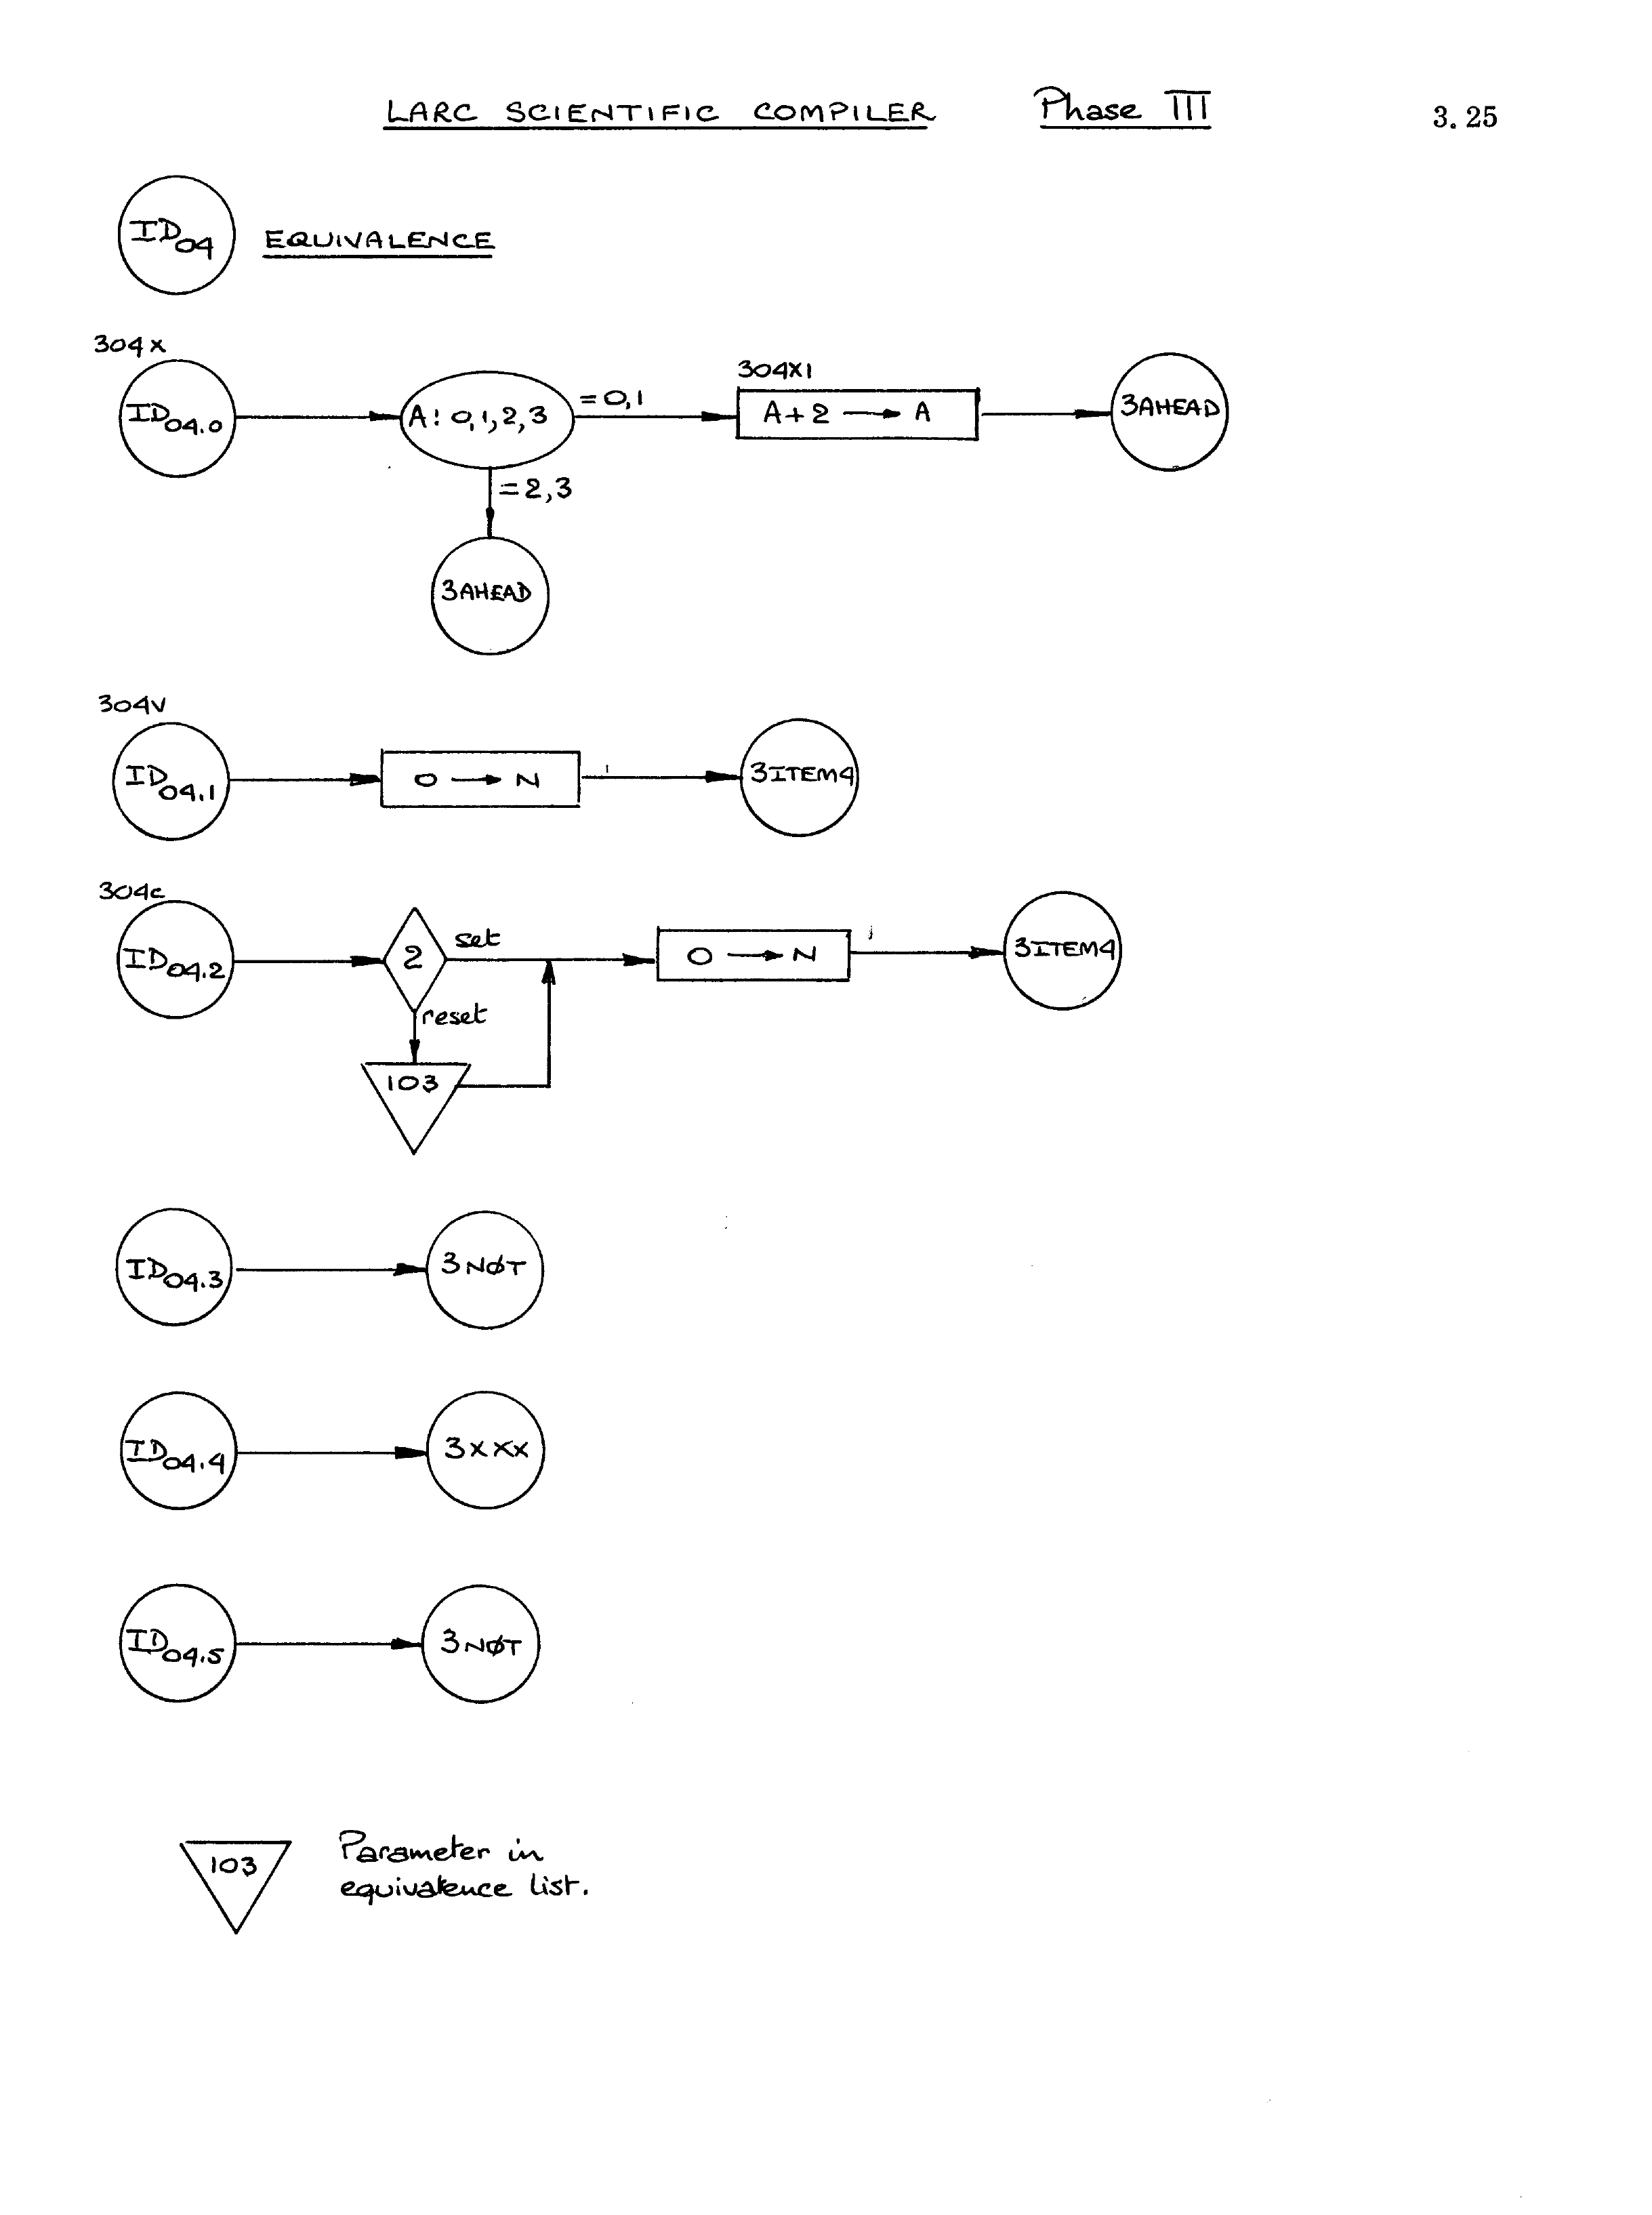 LARC SCIENTIFIC COMPILER Phase III 3.25
ID04 EQUIVALENCE
304X
ID04.0 A: 0,1,2,3 =0,1 304X1 A+2 → A 3AHEAD
=2,3
3AHEAD
304V
ID04.1 0 → N 3ITEM4
304C
ID04.2 2 set 0 → N 3ITEM4
reset
103
ID04.3 3NØT
ID04.4 3XXX
ID04.5 3NØT
103 Parameter in
equivalence list.